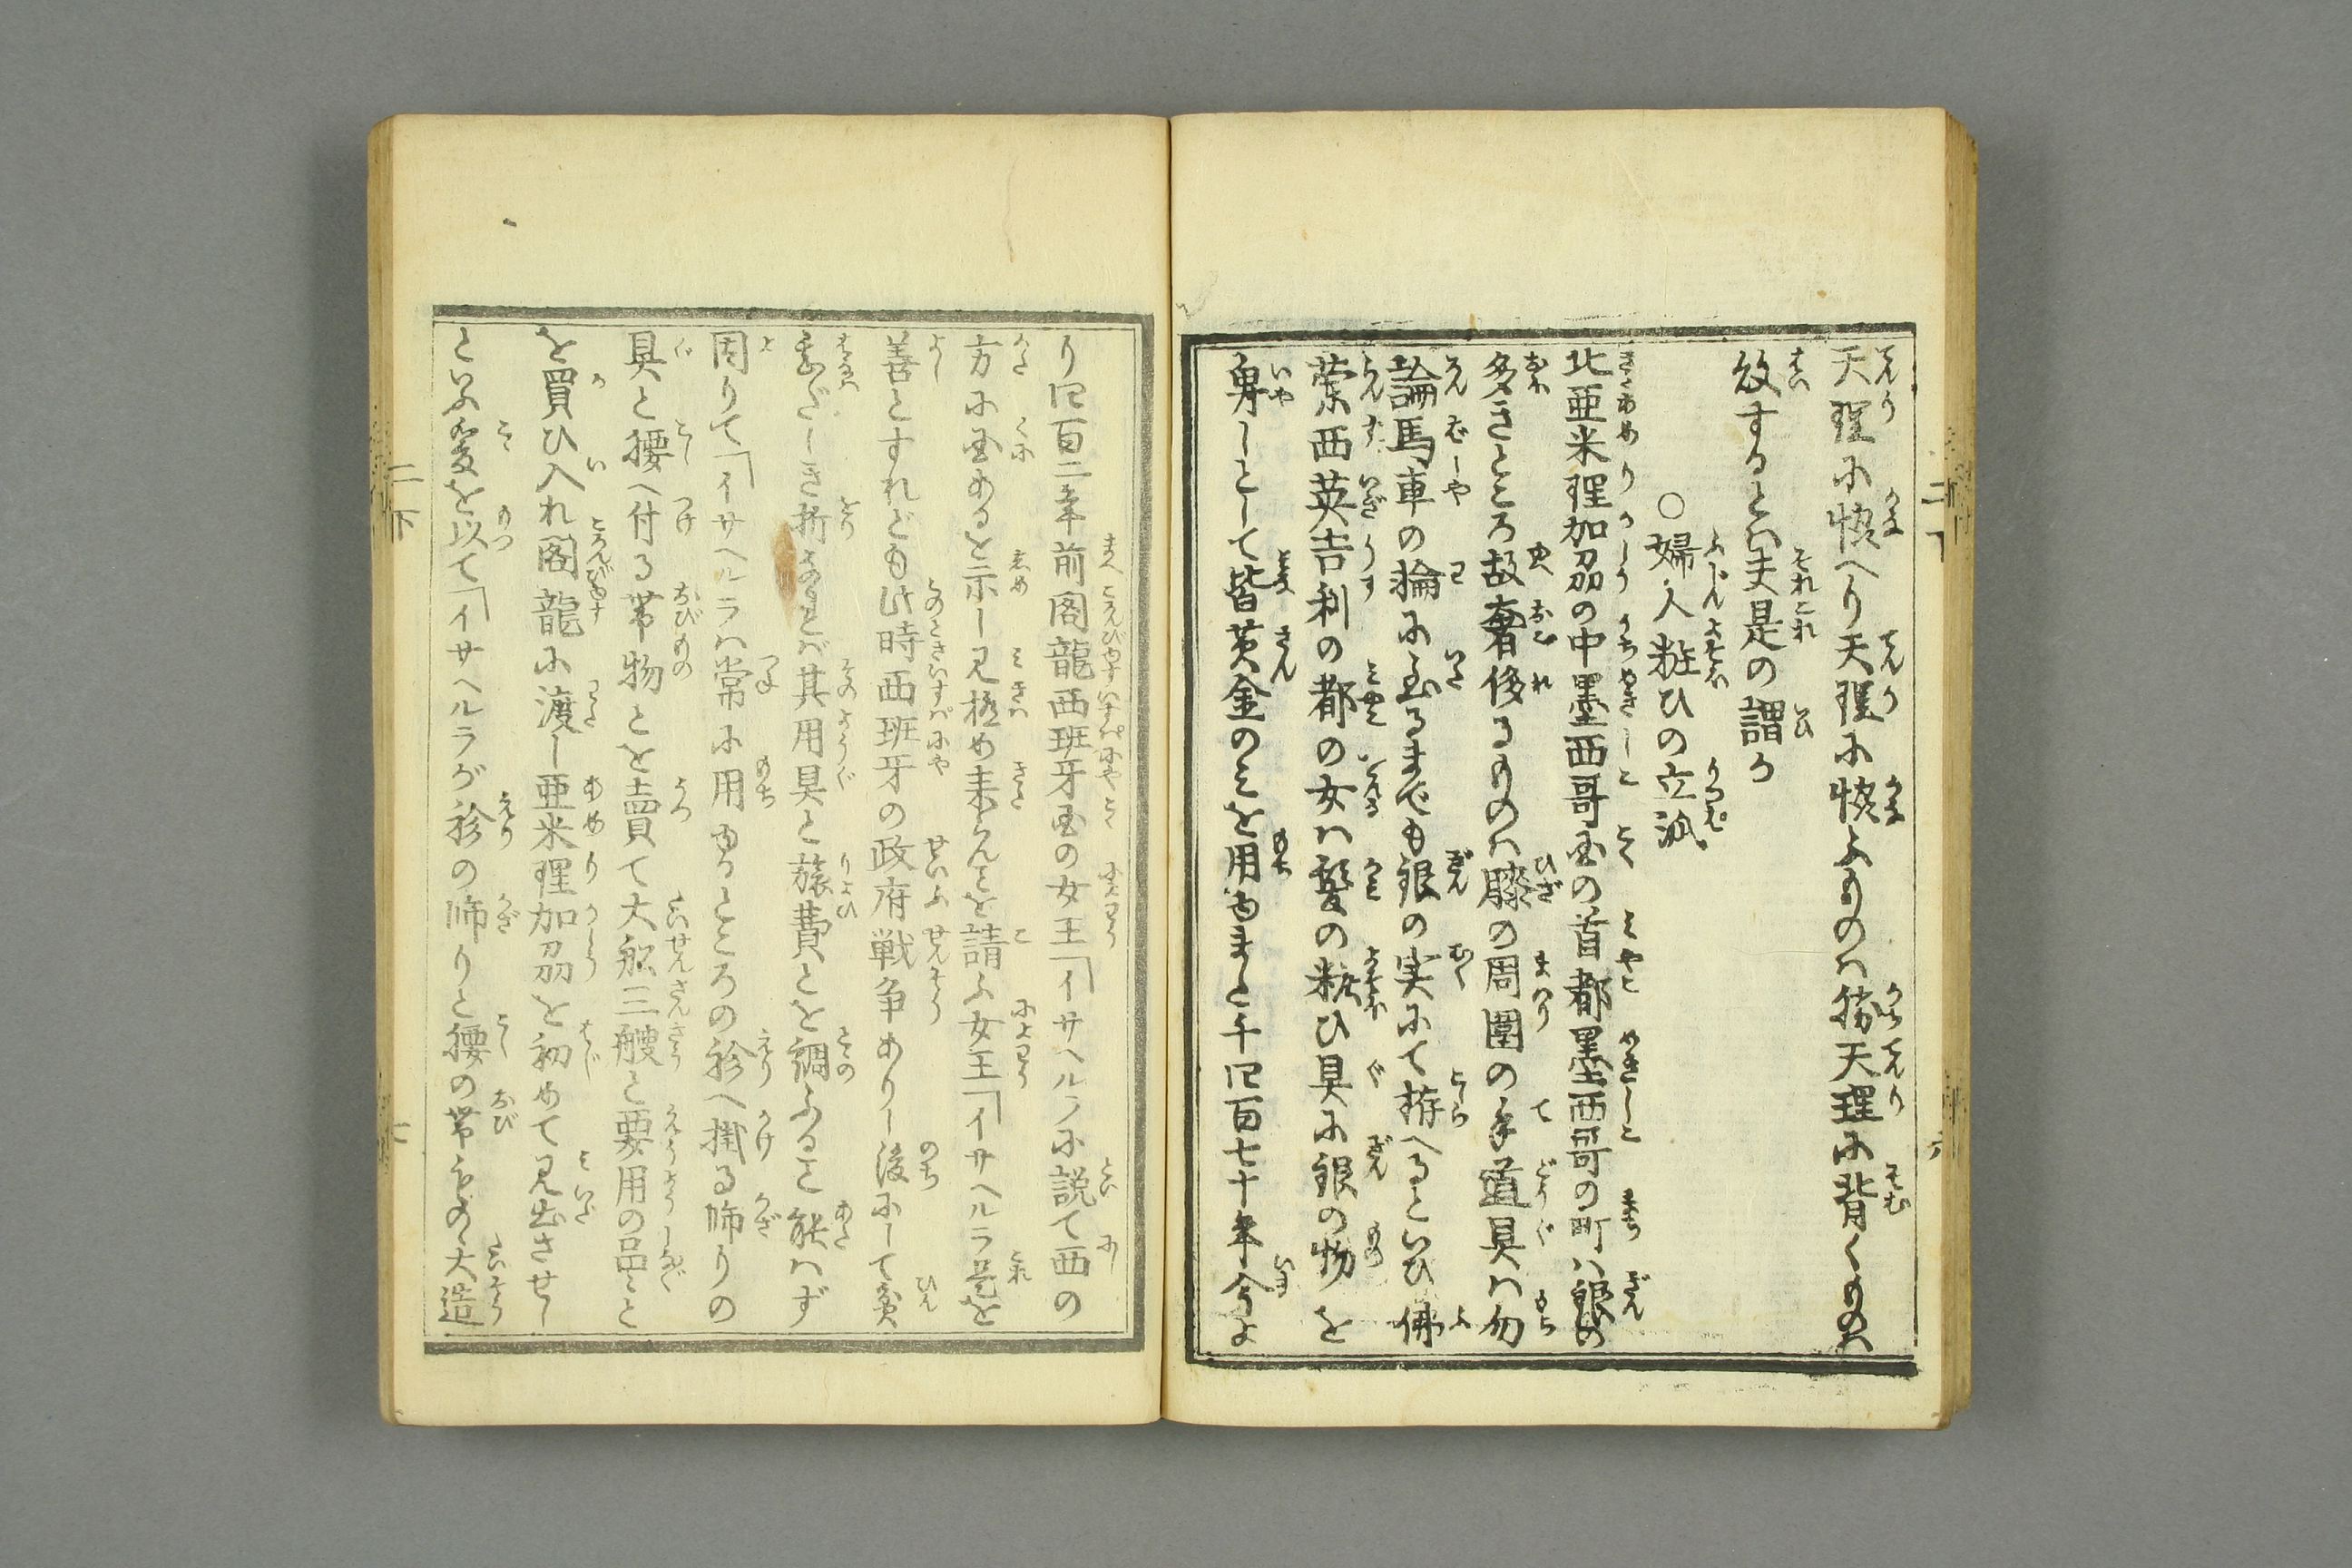 天理に愜へり天理に愜ふものハ勝天理に背くものハ
敗するとハ夫是の謂か
○婦人粧ひの立派
北亜米理加刕の中墨西哥国の首都墨西哥の町ハ銀の
多きところ故奢侈るものハ膝の周囲の手道具ハ勿
論馬車の輪に至るまでも銀の実にて拵へるといひ佛
蘭西英吉利の都の女ハ髪の粧ひ具に銀の物を
身しとして皆黄金のミを用ゆまた千四百七十年今よ
り四百二年前閣龍西班牙国の女王「イサヘルラに説て西の
方に国あるを示し見極め来らんとを請ふ女王「イサヘルラ是を
善とすれども此時西班牙の政府戦争ありし後にして貧
乏だしき折なるとバ其用具と旅費とを調ふること能ハず
因りて「イサヘルラハ常に用ゆるところの衿へ掛る飾りの
具と腰へ付る帯物とを売て大舩三艘と要用の品とと
を買ひ入れ閣龍に渡し亜米理加刕を初めて見出させし
といふ爰を以て「イサヘルラが衿の飾りと腰の帯ものゝ大造
二下
六
二下
七